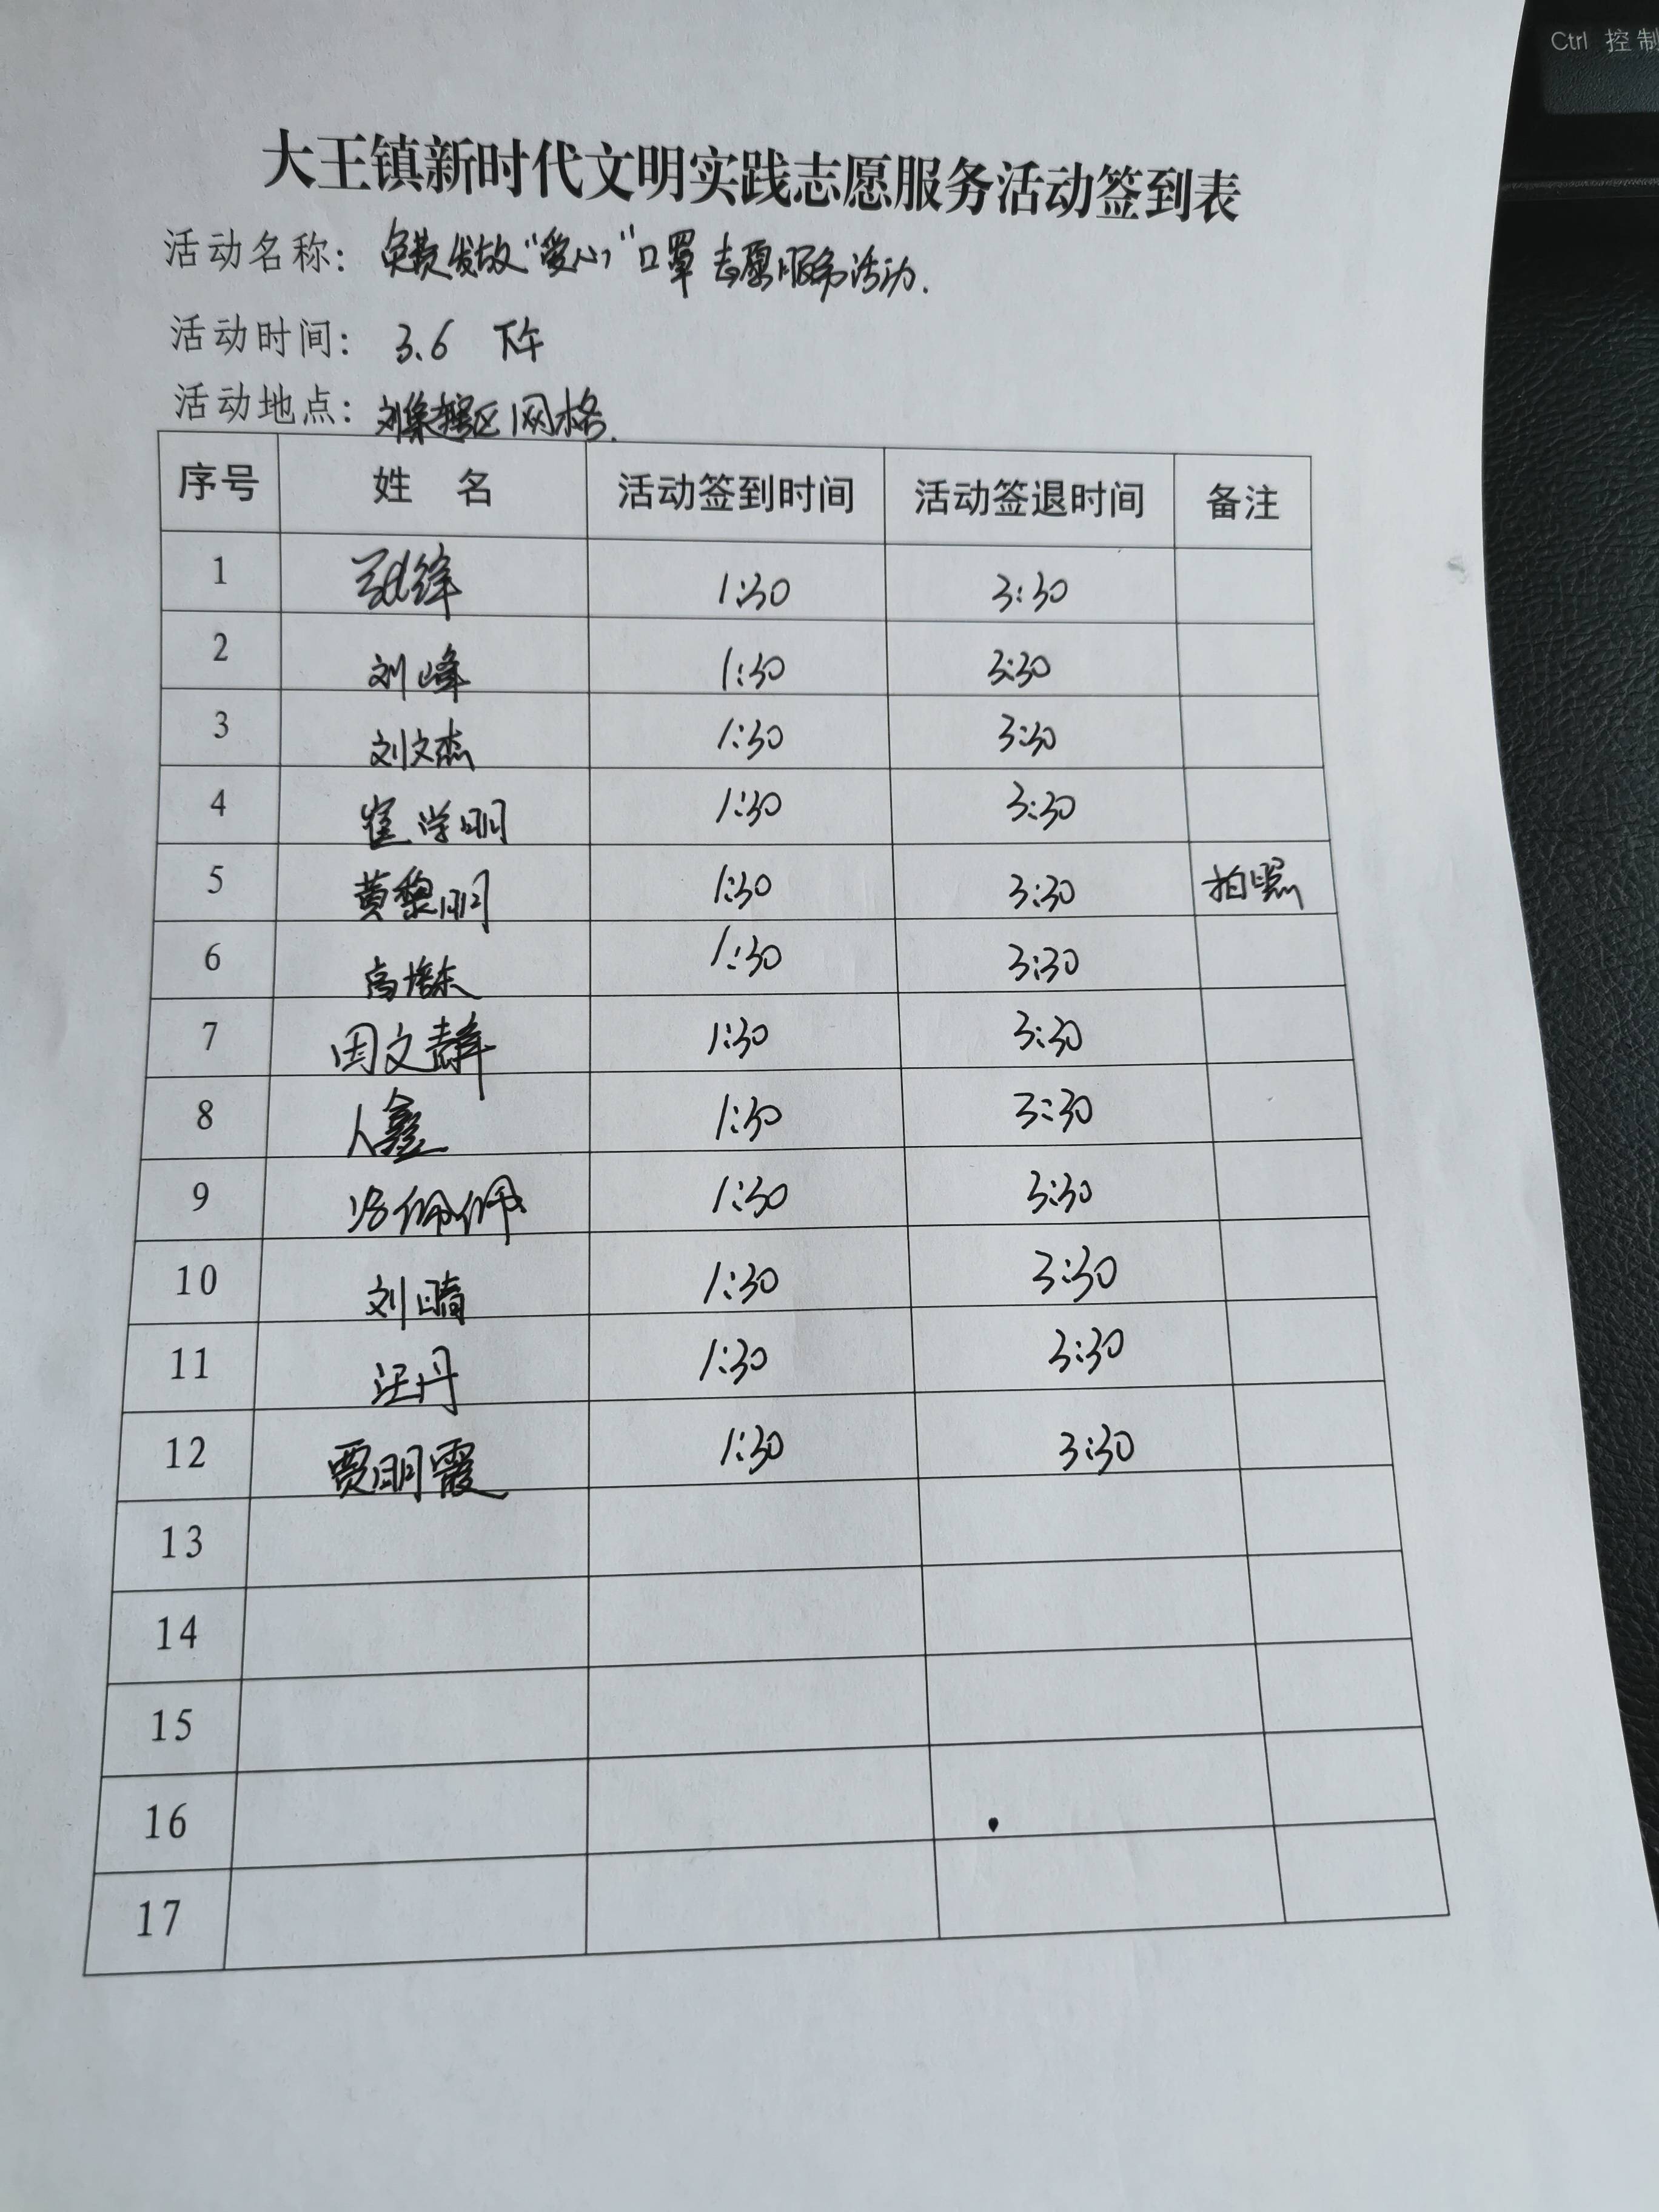 Ctrl 控制
大王镇新时代文明实践志愿服务活动签到表
活动名称: 免费发放“爱心”口罩志愿服务活动.
活动时间: 3.6 下午
活动地点: 刘集辖区网格.
序号 姓 名 活动签到时间 活动签退时间 备注
1 1:30 3:30
2 刘峰 1:30 3:30
3 刘文杰 1:30 3:30
4 崔学明 1:30 3:30
5 黄黎明 1:30 3:30 拍照
6 高培东 1:30 3:30
7 1:30 3:30
8 1:30 3:30
9 佩佩 1:30 3:30
10 刘晴 1:30 3:30
11 汪丹 1:30 3:30
12 贾明霞 1:30 3:30
13
14
15
16
17